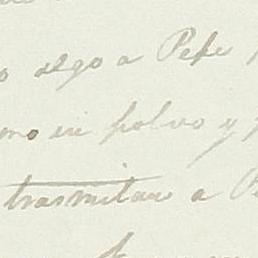 o algo a Pepe
mo in polvo y
trasmitau a P